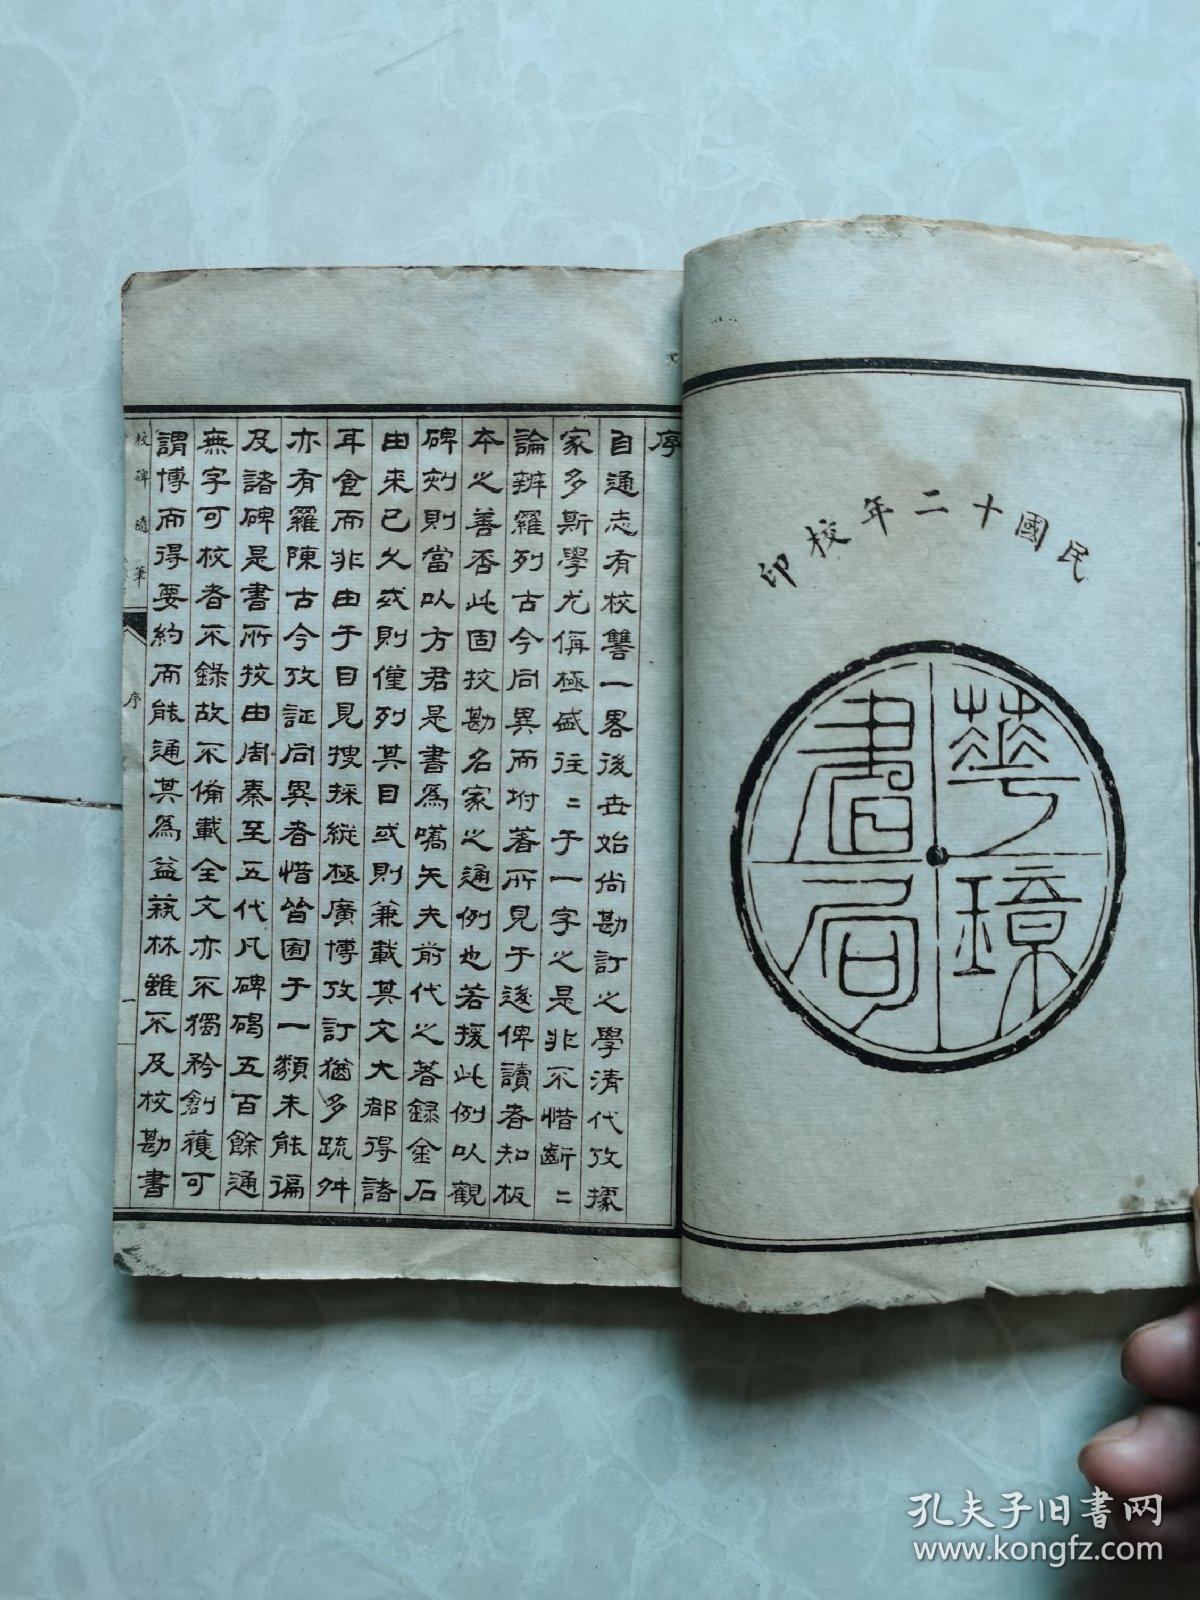 民國十二年校印
華璋書局
序
自通志有校讐一畧後世始尚勘訂之學清代攷據
家多斯學尤稱極盛往二于一字之是非不惜齗二
論辨羅列古今同異而坿著所見于後俾讀者知板
本之善否此固校勘名家之通例也若援此例以觀
碑刻則當以方君是書爲嚆矢夫前代之著録金石
由来已久或則僅列其目或則兼載其文大都得諸
耳食而非由于目見搜採縱極廣博攷訂猶多疏舛
亦有羅陳古今攷証同異者惜皆囿于一類未能徧
及諸碑是書所校由周秦至五代凡碑碣五百餘通
無字可校者不録故不備載全文亦不獨矜創獲可
謂博而得要約而能通其爲益藝林雖不及校勘書
校碑隨筆
序
一
孔夫子旧书网
www.kongfz.com